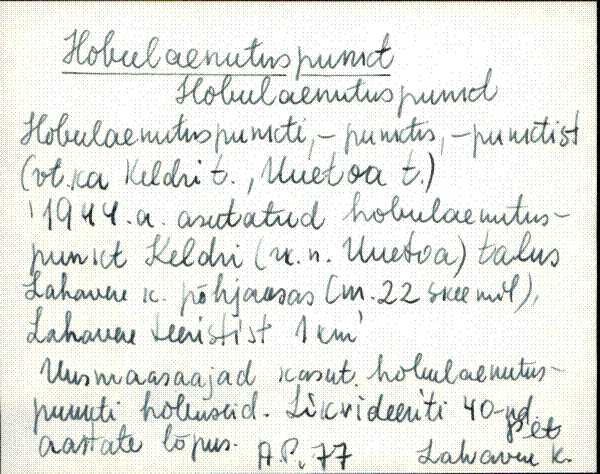 Hobulaenutuspunkt
Hobulaenutuspunkt
Hobulaenutuspunkti, -punktis, -punktist
(vt. ka Keldri t., Uuetoa t.)
'1944. a. asutatud hobulaenutus-
punkt Keldri (k. n. Uuetoa) talus
Lahavere k. põhjaosas (nr. 22 skeemil),
Lahavere teeristist 1 km'
Uusmaasaajad kasut. hobulaenutus-
punkti hobuseid. Likvideeriti 40-nd
aastate lõpus. A.P. 77
Plt
Lahavere k.